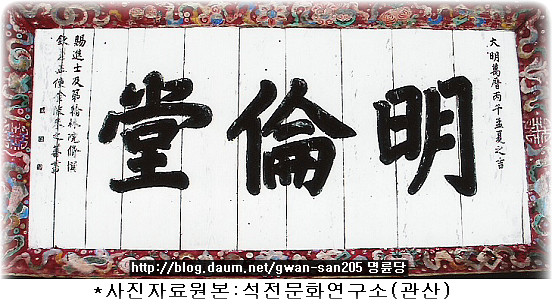 大明萬曆丙午孟夏之吉
明倫堂
賜進士及第翰林院修撰
欽差正使金陵朱之蕃書
http://blog.daum.net/gwan-san205 명륜당
*사진자료원본:석전문화연구소(관산)